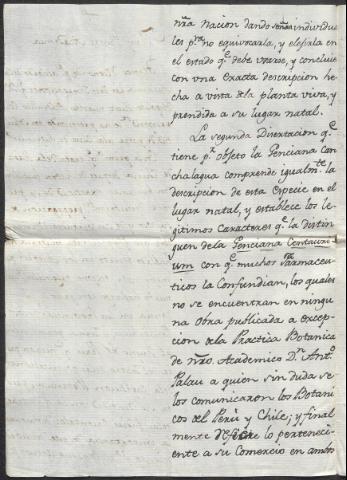 nr̃a Nacion dando señas individua
les p.ra no equivocarla, y elegirla en
el estado q.e debe usarse, y concluie
con una exacta descripcion he
cha a vista de la planta viva, y
prendida a su lugar natal.
La segunda Disertacion q.e
tiene p.r objeto la Genciana Can
chalagua comprende igualm.te la
descripcion de esta Especie en el
lugar natal, y establece los le
gitimos Caracteres q.e la distin
guen de la Genciana Centauri
um con q.e muchos Farmaceu
ticos la Confundian, los quales
no se encuentran en ningu
na obra publicada a excep
cion de la Practica Botanica
de nr̃o Academico D.n Ant.o
Palau a quien sin duda se
los comunicaron los Botani
cos del Perù y Chile; y final
mente refiere lo perteneci
ente a su Comercio en ambos